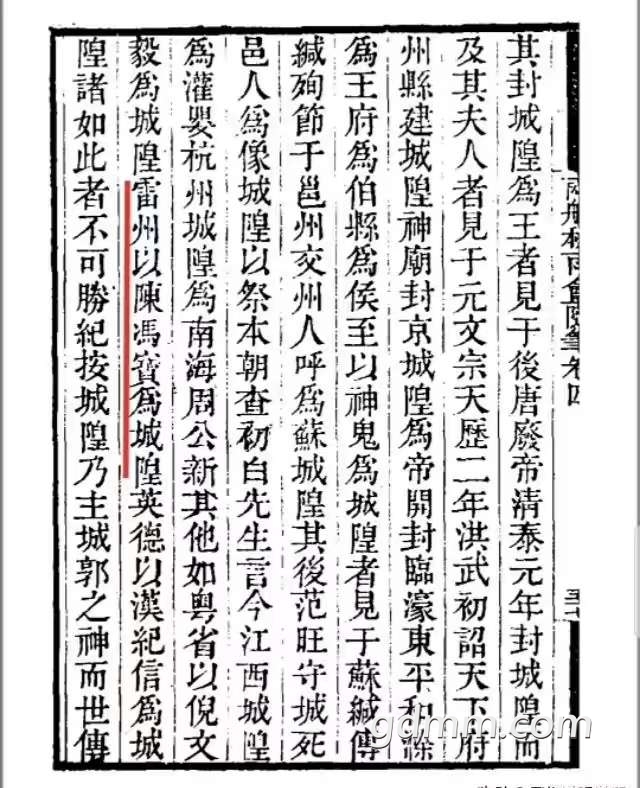 卷四
其封城隍為王者見于後唐廢帝清泰元年封城隍而
及其夫人者見于元文宗天歷二年洪武初詔天下府
州縣建城隍神廟封京城隍為帝開封臨濠東平和滁
為王府為伯縣為侯至以神鬼為城隍者見于蘇緘傳
緘殉節于邕州交州人呼為蘇城隍其後范旺守城死
邑人為像城隍以祭本朝查初白先生言今江西城隍
為灌嬰杭州城隍為南海周公新其他如粵省以倪文
毅為城隍雷州以陳馮寶為城隍英德以漢紀信為城
隍諸如此者不可勝紀按城隍乃主城郭之神而世傳
gdmm.com